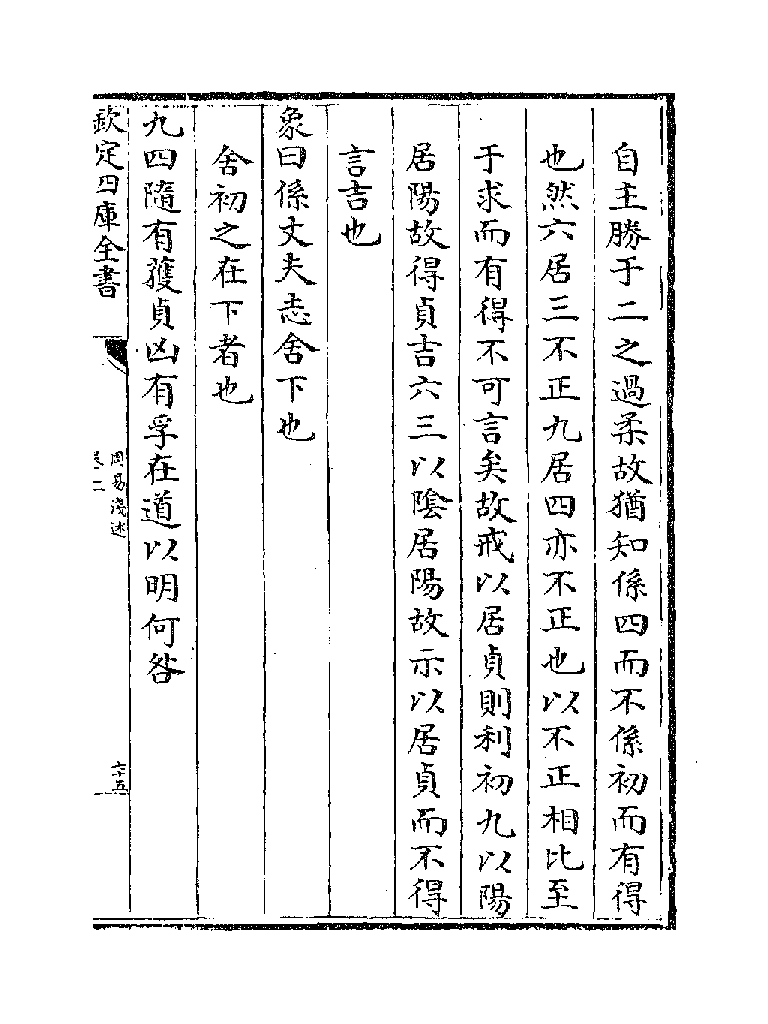 自主勝于二之過柔故猶知係四而不係初而有得
也然六居三不正九居四亦不正也以不正相比至
于求而有得不可言矣故戒以居貞則利初九以陽
居陽故得貞吉六三以陰居陽故示以居貞而不得
言吉也
象曰係丈夫志舍下也
舍初之在下者也
九四隨有獲貞凶有孚在道以明何咎
欽定四庫全書
周易淺述
卷二
六十五